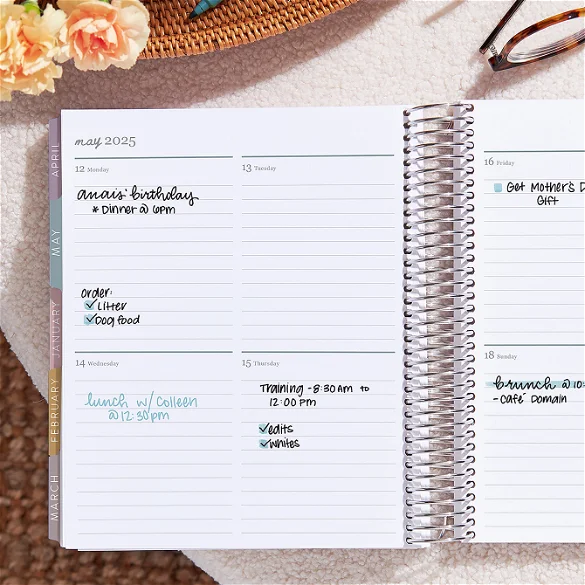 may 2025
12 Monday
anais' birthday
* Dinner @ 6pm
order:
Litter
Dog food
13 Tuesday
14 Wednesday
lunch w/ Colleen
@ 12:30pm
15 Thursday
Training - 8:30 AM to
12:00 PM
edits
whites
16 Friday
Get Mother's D
Gift
18 Sunday
brunch @ 10:
- Café Domain
APRIL
MAY
JANUARY
FEBRUARY
MARCH